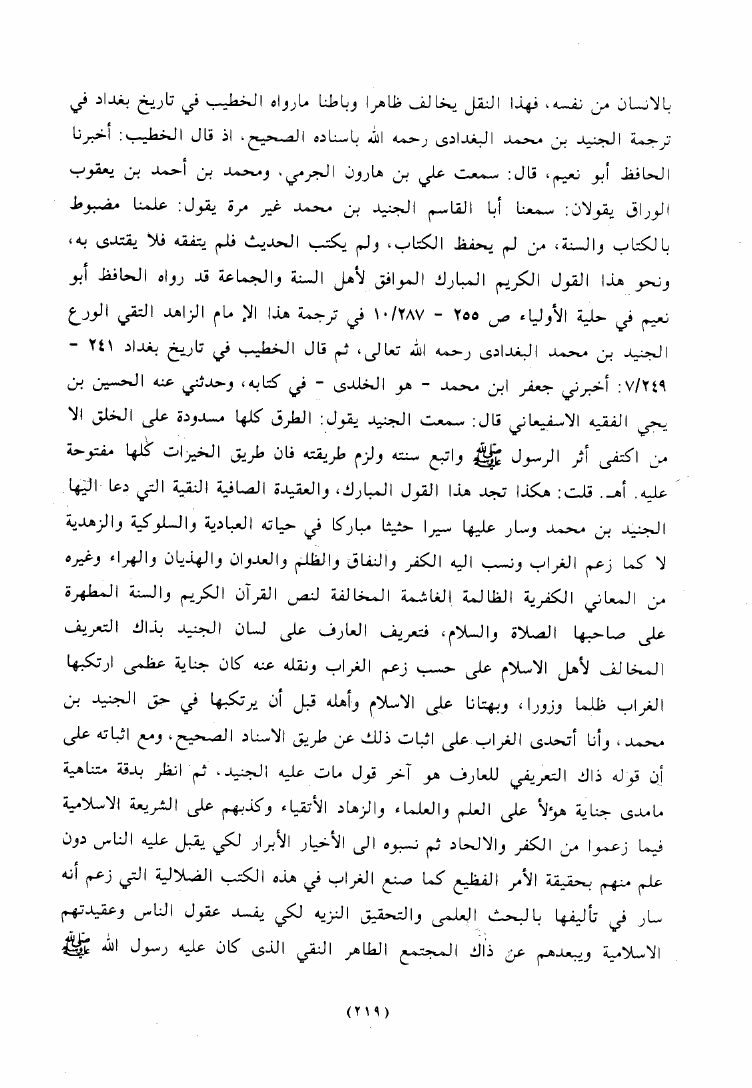 بالانسان من نفسه، فهذا النقل يخالف ظاهرا وباطنا مارواه الخطيب في تاريخ بغداد في
ترجمة الجنيد بن محمد البغدادى رحمه الله باسناده الصحيح، اذ قال الخطيب: أخبرنا
الحافظ أبو نعيم، قال: سمعت علي بن هارون الجرمي، ومحمد بن أحمد بن يعقوب
الوراق يقولان: سمعنا أبا القاسم الجنيد بن محمد غير مرة يقول: علمنا مضبوط
بالكتاب والسنة، من لم يحفظ الكتاب، ولم يكتب الحديث فلم يتفقه فلا يقتدى به،
ونحو هذا القول الكريم المبارك الموافق لأهل السنة والجماعة قد رواه الحافظ أبو
نعيم في حلية الأولياء ص ٢٥٥ - ١٠/٢٨٧ في ترجمة هذا الإ مام الزاهد التقي الورع
الجنيد بن محمد البغدادى رحمه الله تعالى، ثم قال الخطيب في تاريخ بغداد ٢٤١ -
٧/٢٤٩: أخبرني جعفر ابن محمد - هو الخلدى - في كتابه، وحدثني عنه الحسين بن
يحي الفقيه الاسفيعاني قال: سمعت الجنيد يقول: الطرق كلها مسدودة على الخلق الا
من اكتفى أثر الرسول ﷺ واتبع سنته ولزم طريقته فان طريق الخيرات كلها مفتوحة
عليه. أهـ. قلت: هكذا تجد هذا القول المبارك، والعقيدة الصافية النقية التي دعا اليها
الجنيد بن محمد وسار عليها سيرا حثيثا مباركا في حياته العبادية والسلوكية والزهدية
لا كما زعم الغراب ونسب اليه الكفر والنفاق والظلم والعدوان والهذيان والهراء وغيره
من المعاني الكفرية الظالمة الغاشمة المخالفة لنص القرآن الكريم والسنة المطهرة
على صاحبها الصلاة والسلام، فتعريف العارف على لسان الجنيد بذاك التعريف
المخالف لأهل الاسلام على حسب زعم الغراب ونقله عنه كان جناية عظمى ارتكبها
الغراب ظلما وزورا، وبهتانا على الاسلام وأهله قبل أن يرتكبها في حق الجنيد بن
محمد، وأنا أتحدى الغراب على اثبات ذلك عن طريق الاسناد الصحيح، ومع اثباته على
أن قوله ذاك التعريفي للعارف هو آخر قول مات عليه الجنيد، ثم انظر بدقة متناهية
مامدى جناية هوٴلأ على العلم والعلماء والزهاد الأتقياء وكذبهم على الشريعة الاسلامية
فيما زعموا من الكفر والالحاد ثم نسبوه الى الأخيار الأبرار لكي يقبل عليه الناس دون
علم منهم بحقيقة الأمر الفظيع كما صنع الغراب في هذه الكتب الضلالية التي زعم أنه
سار في تأليفها بالبحث العلمى والتحقيق النزيه لكي يفسد عقول الناس وعقيدتهم
الاسلامية ويبعدهم عن ذاك المجتمع الطاهر النقي الذى كان عليه رسول الله ﷺ
(٢١٩)